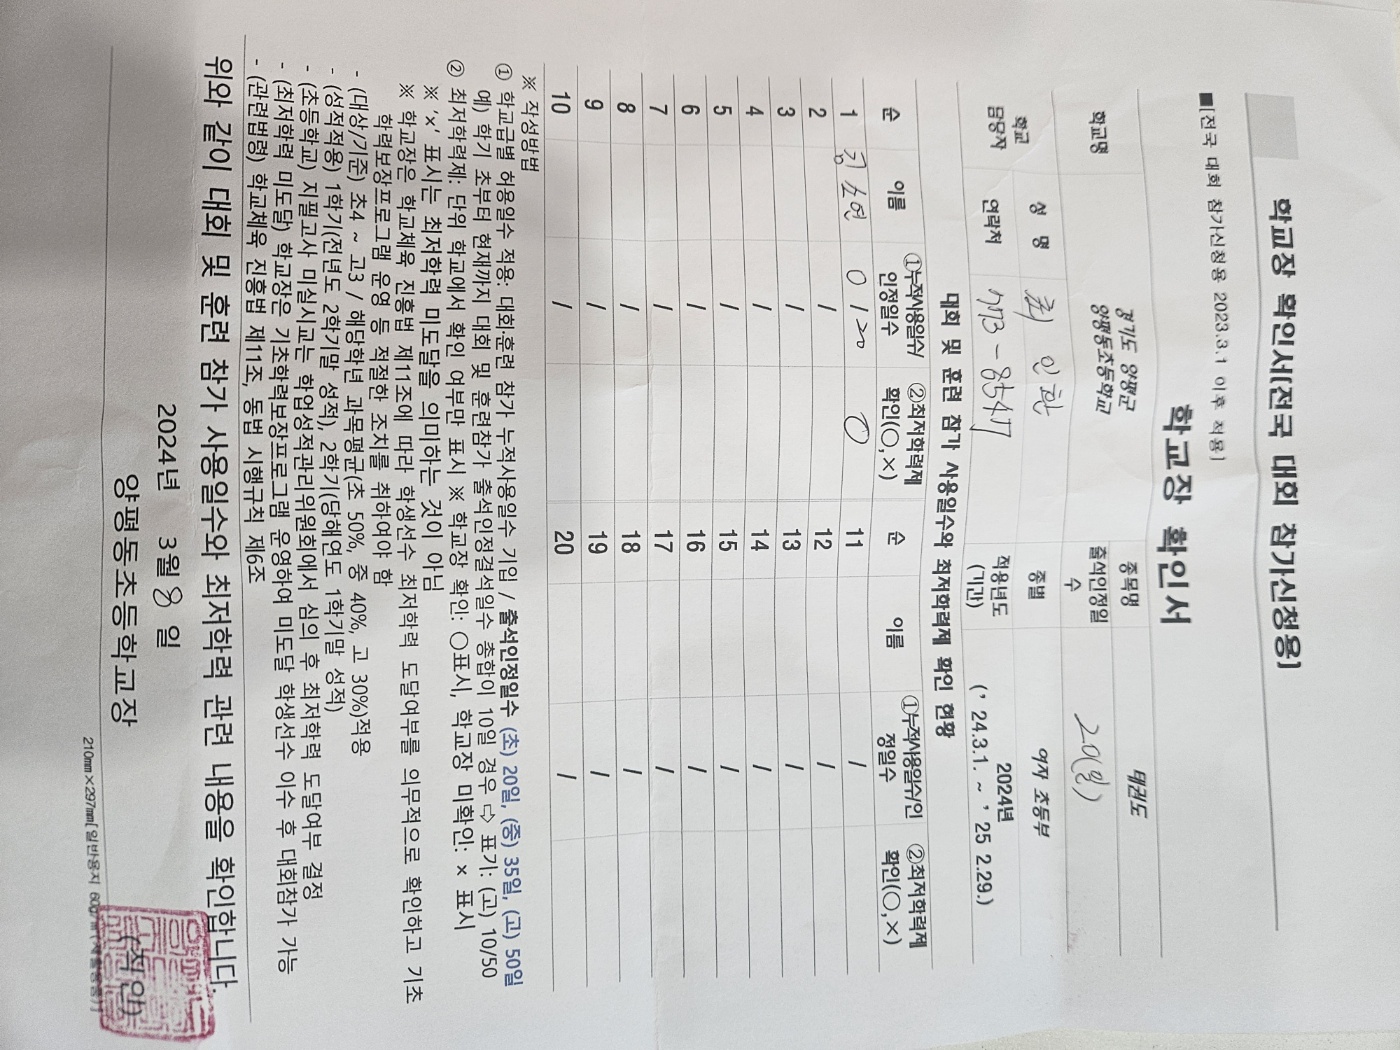 학교장 확인서[전국 대회 참가신청용]
■[전국 대회 참가신청용 2023.3.1 이후 적용]
학교장 확인서
학교명 경기도 양평군 양평동초등학교 종목명 태권도
출석인정일수 20(일)
학교 담당자 성 명 최 인환 종별 여자 초등부
연락처 773-8547 적용년도 (기간) 2024년 (’24.3.1. ~ ’25 2.29.)
대회 및 훈련 참가 사용일수와 최저학력제 확인 현황
순 이름 ①누적사용일수/인정일수 ②최저학력제 확인(○,×) 순 이름 ①누적사용일수/인정일수 ②최저학력제 확인(○,×)
1 김소연 0 / 20 ○ 11 /
2 / 12 /
3 / 13 /
4 / 14 /
5 / 15 /
6 / 16 /
7 / 17 /
8 / 18 /
9 / 19 /
10 / 20 /
※ 작성방법
① 학교급별 허용일수 적용: 대회·훈련 참가 누적사용일수 기입 / 출석인정일수 (초) 20일, (중) 35일, (고) 50일
예) 학기 초부터 현재까지 대회 및 훈련참가 출석인정결석일수 총합이 10일 경우 ⇨ 표기: (고) 10/50
② 최저학력제: 단위 학교에서 확인 여부만 표시 ※ 학교장 확인: ○표시, 학교장 미확인: × 표시
※ ‘×’ 표시는 최저학력 미도달을 의미하는 것이 아님
※ 학교장은 학교체육 진흥법 제11조에 따라 학생선수 최저학력 도달여부를 의무적으로 확인하고 기초
학력보장프로그램 운영 등 적절한 조치를 취하여야 함
- (대상/기준) 초4 ~ 고3 / 해당학년 과목평균(초 50%, 중 40%, 고 30%)적용
- (성적적용) 1학기(전년도 2학기말 성적), 2학기(당해연도 1학기말 성적)
- (초등학교) 지필고사 미실시교는 학업성적관리위원회에서 심의 후 최저학력 도달여부 결정
- (최저학력 미도달) 학교장은 기초학력보장프로그램 운영하여 미도달 학생선수 이수 후 대회참가 가능
- (관련법령) 학교체육 진흥법 제11조, 동법 시행규칙 제6조
위와 같이 대회 및 훈련 참가 사용일수와 최저학력 관련 내용을 확인합니다.
2024년 3월 8 일
양평동초등학교장 (직인)
210mm×297mm[일반용지 60g/㎡(재활용품)]